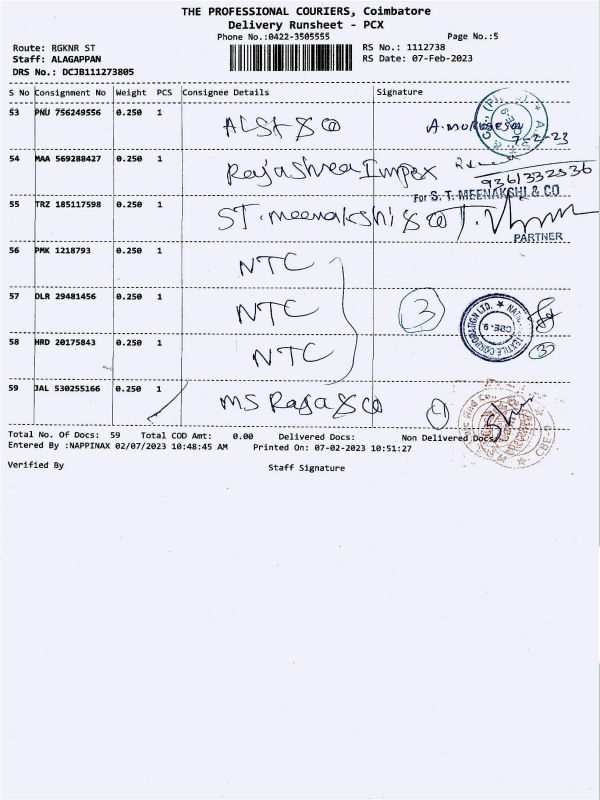 THE PROFESSIONAL COURIERS, Coimbatore
Delivery Runsheet - PCX
Phone No.:0422-3505555 Page No.:5
Route: RGKNR ST RS No.: 1112738
Staff: ALAGAPPAN RS Date: 07-Feb-2023
DRS No.: DCJB111273805
S No Consignment No Weight PCS Consignee Details Signature
53 PNU 756249556 0.250 1 ALSt & co A.murugesan
7-2-23
54 MAA 569288427 0.250 1 Rajashree Impex
9361332536
For S. T. MEENAKSHI & CO
55 TRZ 185117598 0.250 1 ST.meenakshi & co
PARTNER
56 PMK 1218793 0.250 1 NTC
57 DLR 29481456 0.250 1 NTC 3
NATIONAL TEXTILE CORPORATION LTD. CBE.9
58 HRD 20175843 0.250 1 NTC 3
59 JAL 530255166 0.250 1 MS Raja & co 1
CBE-9
Total No. Of Docs: 59 Total COD Amt: 0.00 Delivered Docs: Non Delivered Docs:
Entered By :NAPPINAX 02/07/2023 10:48:45 AM Printed On: 07-02-2023 10:51:27
Verified By Staff Signature